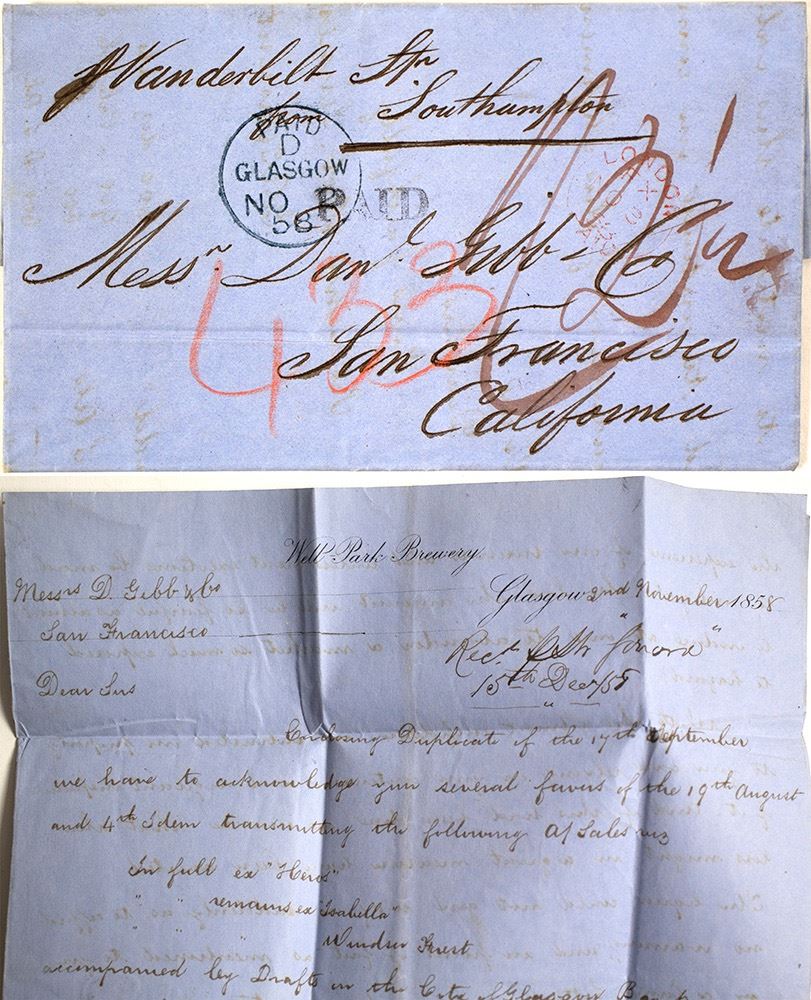 p Vanderbilt Str
from Southampton
PAID
D
GLASGOW
NO
58
PAID
LONDON
Messrs Danl. Gibb & Co
433
San Francisco
California
Well Park Brewery.
Messrs D. Gibb & Co
Glasgow 2nd November 1858
San Francisco
Recd p Str "Sonora"
15th Decr/58
Dear Sirs
Enclosing Duplicate of the 17th September
we have to acknowledge your several favors of the 19th August
and 4th Idem transmitting the following A/Sales viz
In full ex "Heros"
" " remains ex "Isabella"
" " " Windsor Forest
accompanied by Drafts on the City of Glasgow Bank